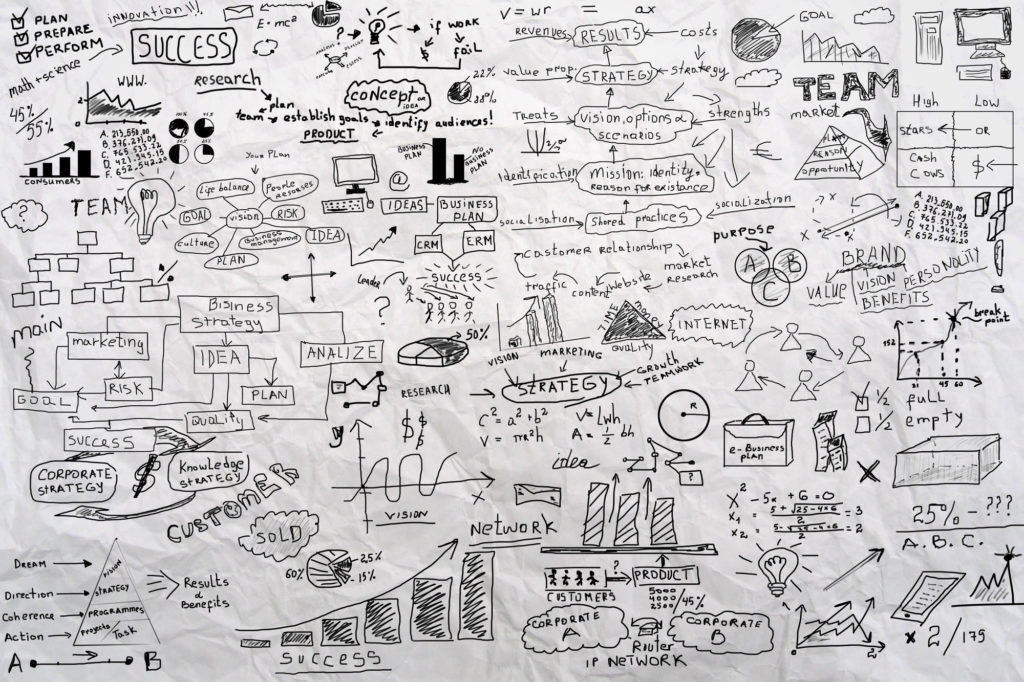 PLAN
PREPARE
PERFORM
INNOVATION!!!
SUCCESS
E=mc²
math+science
45%
55%
2
WWW.
A. 213,558,00
B. 376,271,09
C. 765,533,22
D. 421,945,15
F. 652,542,20
CONSUMERS
research
plan
team
establish goals
identify audiences!
PRODUCT
?
if work
$
fail
CONCEPT
or
IDEA
22%
38%
BUSINESS
PLAN
NO
BUSINESS
PLAN
V=wr = ax
revenues
RESULTS
costs
value prop.
STRATEGY
strategy
Treats
Vision, options &
scenarios
strengths
Identification
Mission: identity,
reason for existance
€
socialisation
Shared practices
socialization
GOAL
TEAM
market
PLAN
REASON
opportunity
High Low
STARS
OR
CASH
COWS
$
A. 213,558,00
B. 376,271,09
C. 765,533,22
D. 421,945,15
F. 652,542,20
?
TEAM
YOUR PLAN
Life balance
People
resorses
GOAL
vision
RISK
culture
Business
management
PLAN
IDEA
@
IDEAS
BUSINESS
PLAN
CRM
ERM
SUCCESS
Leader
?
customer relationship
traffic
content
website
market
research
PURPOSE
A
B
C
X
X
X
BRAND
VALUE
VISION PERSONLITY
BENEFITS
MAIN
Bisiness
Strategy
marketing
IDEA
ANALIZE
RISK
PLAN
GOAL
Quality
50%
VISION
MARKETING
TIME
QUALITY
INTERNET
GROWTH
TEAMWORK
STRATEGY
RESEARCH
$$
$$
break
point
152
21
45
60
1/2
full
1/2
empty
SUCCESS
CORPORATE
STRATEGY
$
Knowledge
STRATEGY
CUSTOMER
SOLD
Y
X
VISION
c²=a²+b²
V=Lwh
V=πr²h
A=1/2 bh
R
idea
?
e-Business
plan
X²-5x+6=0
X₁=5+√25-4×6/2=3
X₂=5-√25-4×6/2=2
25%-???
A.B.C.
DREAM
Direction
Coherence
Action
VISION
STRATEGY
PROGRAMMES
Projects/Task
Results
&
Benefits
A
B
60%
25%
15%
SUCCESS
NETWORK
CUSTOMERS
?
PRODUCT
5000
4000
2500
/45%
CORPORATE
A
CORPORATE
B
Router
IP NETWORK
2
x 2/175